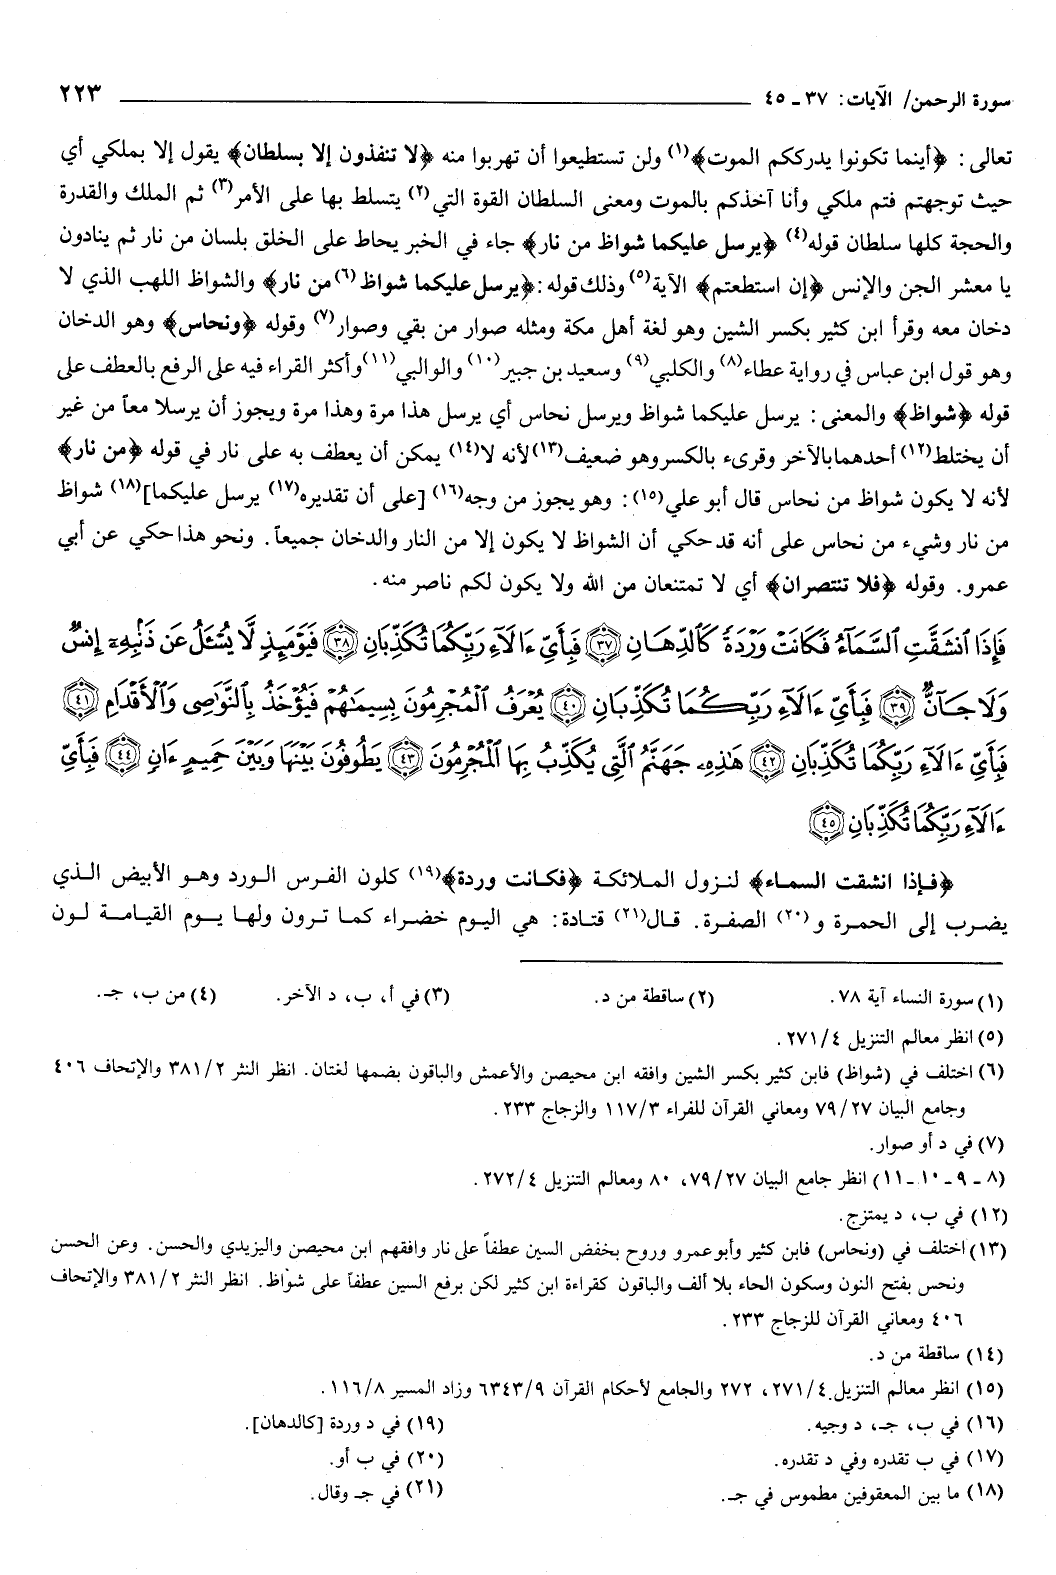 سورة الرحمن/ الآيات: ٣٧ ـ ٤٥ ٢٢٣
تعالى: ﴿أينما تكونوا يدرككم الموت﴾(١) ولن تستطيعوا أن تهربوا منه ﴿لا تنفذون إلا بسلطان﴾ يقول إلا بملكي أي
حيث توجهتم فثم ملكي وأنا آخذكم بالموت ومعنى السلطان القوة التي(٢) يتسلط بها على الأمر(٣) ثم الملك والقدرة
والحجة كلها سلطان قوله(٤) ﴿يرسل عليكما شواظ من نار﴾ جاء في الخبر يحاط على الخلق بلسان من نار ثم ينادون
يا معشر الجن والإنس ﴿إن استطعتم﴾ الآية(٥) وذلك قوله: ﴿يرسل عليكما شواظ(٦) من نار﴾ والشواظ اللهب الذي لا
دخان معه وقرأ ابن كثير بكسر الشين وهو لغة أهل مكة ومثله صوار من بقي وصوار(٧) وقوله ﴿ونحاس﴾ وهو الدخان
وهو قول ابن عباس في رواية عطاء(٨) والكلبي(٩) وسعيد بن جبير(١٠) والوالبي(١١) وأكثر القراء فيه على الرفع بالعطف على
قوله ﴿شواظ﴾ والمعنى: يرسل عليكما شواظ ويرسل نحاس أي يرسل هذا مرة وهذا مرة ويجوز أن يرسلا معاً من غير
أن يختلط(١٢) أحدهما بالآخر وقرىء بالكسر وهو ضعيف(١٣) لأنه لا(١٤) يمكن أن يعطف به على نار في قوله ﴿من نار﴾
لأنه لا يكون شواظ من نحاس قال أبو علي(١٥): وهو يجوز من وجه(١٦) [على أن تقديره(١٧) يرسل عليكما](١٨) شواظ
من نار وشيء من نحاس على أنه قد حكي أن الشواظ لا يكون إلا من النار والدخان جميعاً. ونحو هذا حكي عن أبي
عمرو. وقوله ﴿فلا تنتصران﴾ أي لا تمتنعان من الله ولا يكون لكم ناصر منه.
فَإِذَا ٱنشَقَّتِ ٱلسَّمَآءُ فَكَانَتْ وَرْدَةً كَٱلدِّهَانِ ٣٧ فَبِأَيِّ ءَالَآءِ رَبِّكُمَا تُكَذِّبَانِ ٣٨ فَيَوْمَئِذٍ لَّا يُسْـَٔلُ عَن ذَنۢبِهِۦٓ إِنسٌ
وَلَا جَآنٌّ ٣٩ فَبِأَيِّ ءَالَآءِ رَبِّكُمَا تُكَذِّبَانِ ٤٠ يُعْرَفُ ٱلْمُجْرِمُونَ بِسِيمَٰهُمْ فَيُؤْخَذُ بِٱلنَّوَٰصِى وَٱلْأَقْدَامِ ٤١
فَبِأَيِّ ءَالَآءِ رَبِّكُمَا تُكَذِّبَانِ ٤٢ هَٰذِهِۦ جَهَنَّمُ ٱلَّتِى يُكَذِّبُ بِهَا ٱلْمُجْرِمُونَ ٤٣ يَطُوفُونَ بَيْنَهَا وَبَيْنَ حَمِيمٍ ءَانٍ ٤٤ فَبِأَيِّ
ءَالَآءِ رَبِّكُمَا تُكَذِّبَانِ ٤٥
﴿فإذا انشقت السماء﴾ لنزول الملائكة ﴿فكانت وردة﴾(١٩) كلون الفرس الورد وهو الأبيض الذي
يضرب إلى الحمرة و(٢٠) الصفرة. قال(٢١) قتادة: هي اليوم خضراء كما ترون ولها يوم القيامة لون
(١) سورة النساء آية ٧٨. (٢) ساقطة من د. (٣) في أ، ب، د الآخر. (٤) من ب، جـ.
(٥) انظر معالم التنزيل ٤/٢٧١.
(٦) اختلف في (شواظ) فابن كثير بكسر الشين وافقه ابن محيصن والأعمش والباقون بضمها لغتان. انظر النثر ٢/٣٨١ والإتحاف ٤٠٦
وجامع البيان ٢٧/٧٩ ومعاني القرآن للفراء ٣/١١٧ والزجاج ٢٣٣.
(٧) في د أو صوار.
(٨ - ٩ - ١٠ - ١١) انظر جامع البيان ٢٧/٧٩، ٨٠ ومعالم التنزيل ٤/٢٧٢.
(١٢) في ب، د يمتزج.
(١٣) اختلف في (ونحاس) فابن كثير وأبو عمرو وروح بخفض السين عطفاً على نار وافقهم ابن محيصن واليزيدي والحسن. وعن الحسن
ونحس بفتح النون وسكون الحاء بلا ألف والباقون كقراءة ابن كثير لكن برفع السين عطفاً على شواظ. انظر النثر ٢/٣٨١ والإتحاف
٤٠٦ ومعاني القرآن للزجاج ٢٣٣.
(١٤) ساقطة من د.
(١٥) انظر معالم التنزيل ٤/٢٧١، ٢٧٢ والجامع لأحكام القرآن ٩/٦٣٤٣ وزاد المسير ٨/١١٦.
(١٦) في ب، جـ، د وجيه. (١٩) في د وردة [كالدهان].
(١٧) في ب تقدره وفي د تقدره. (٢٠) في ب أو.
(١٨) ما بين المعقوفين مطموس في جـ. (٢١) في جـ وقال.